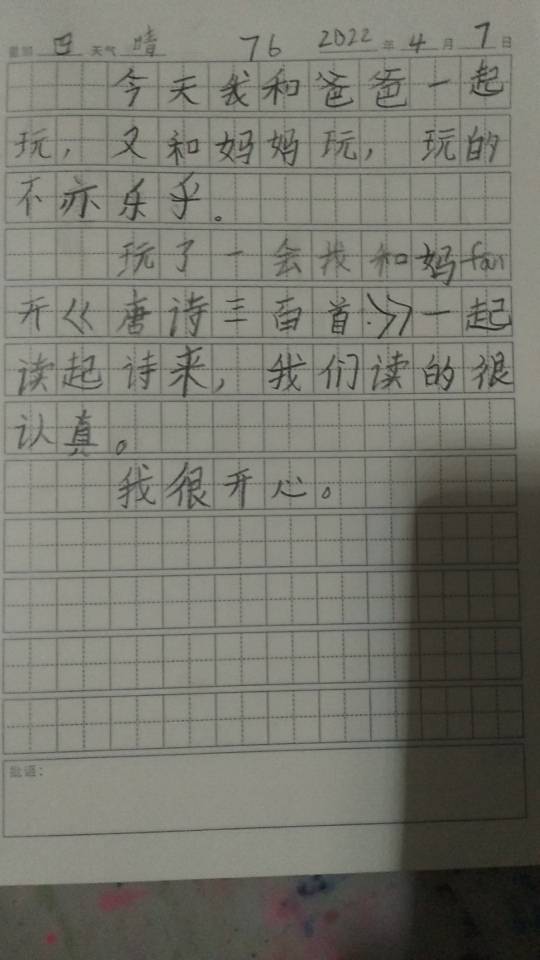 星期 四 天气 晴 76 2022 年 4 月 7 日
今天我和爸爸一起
玩，又和妈妈玩，玩的
不亦乐乎。
玩了一会我和妈fan
开《唐诗三百首》一起
读起诗来，我们读的很
认真。
我很开心。
批语：